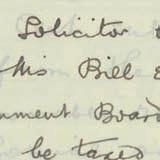 Solicitor
His Bill
nment Board
be taxed